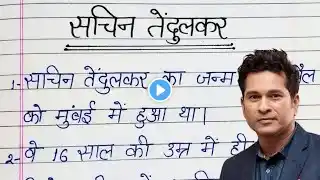 सचिन तेंदुलकर
1- सचिन तेंदुलकर का जन्म
को मुंबई में हुआ था।
2- वे 16 साल की उम्र में ही